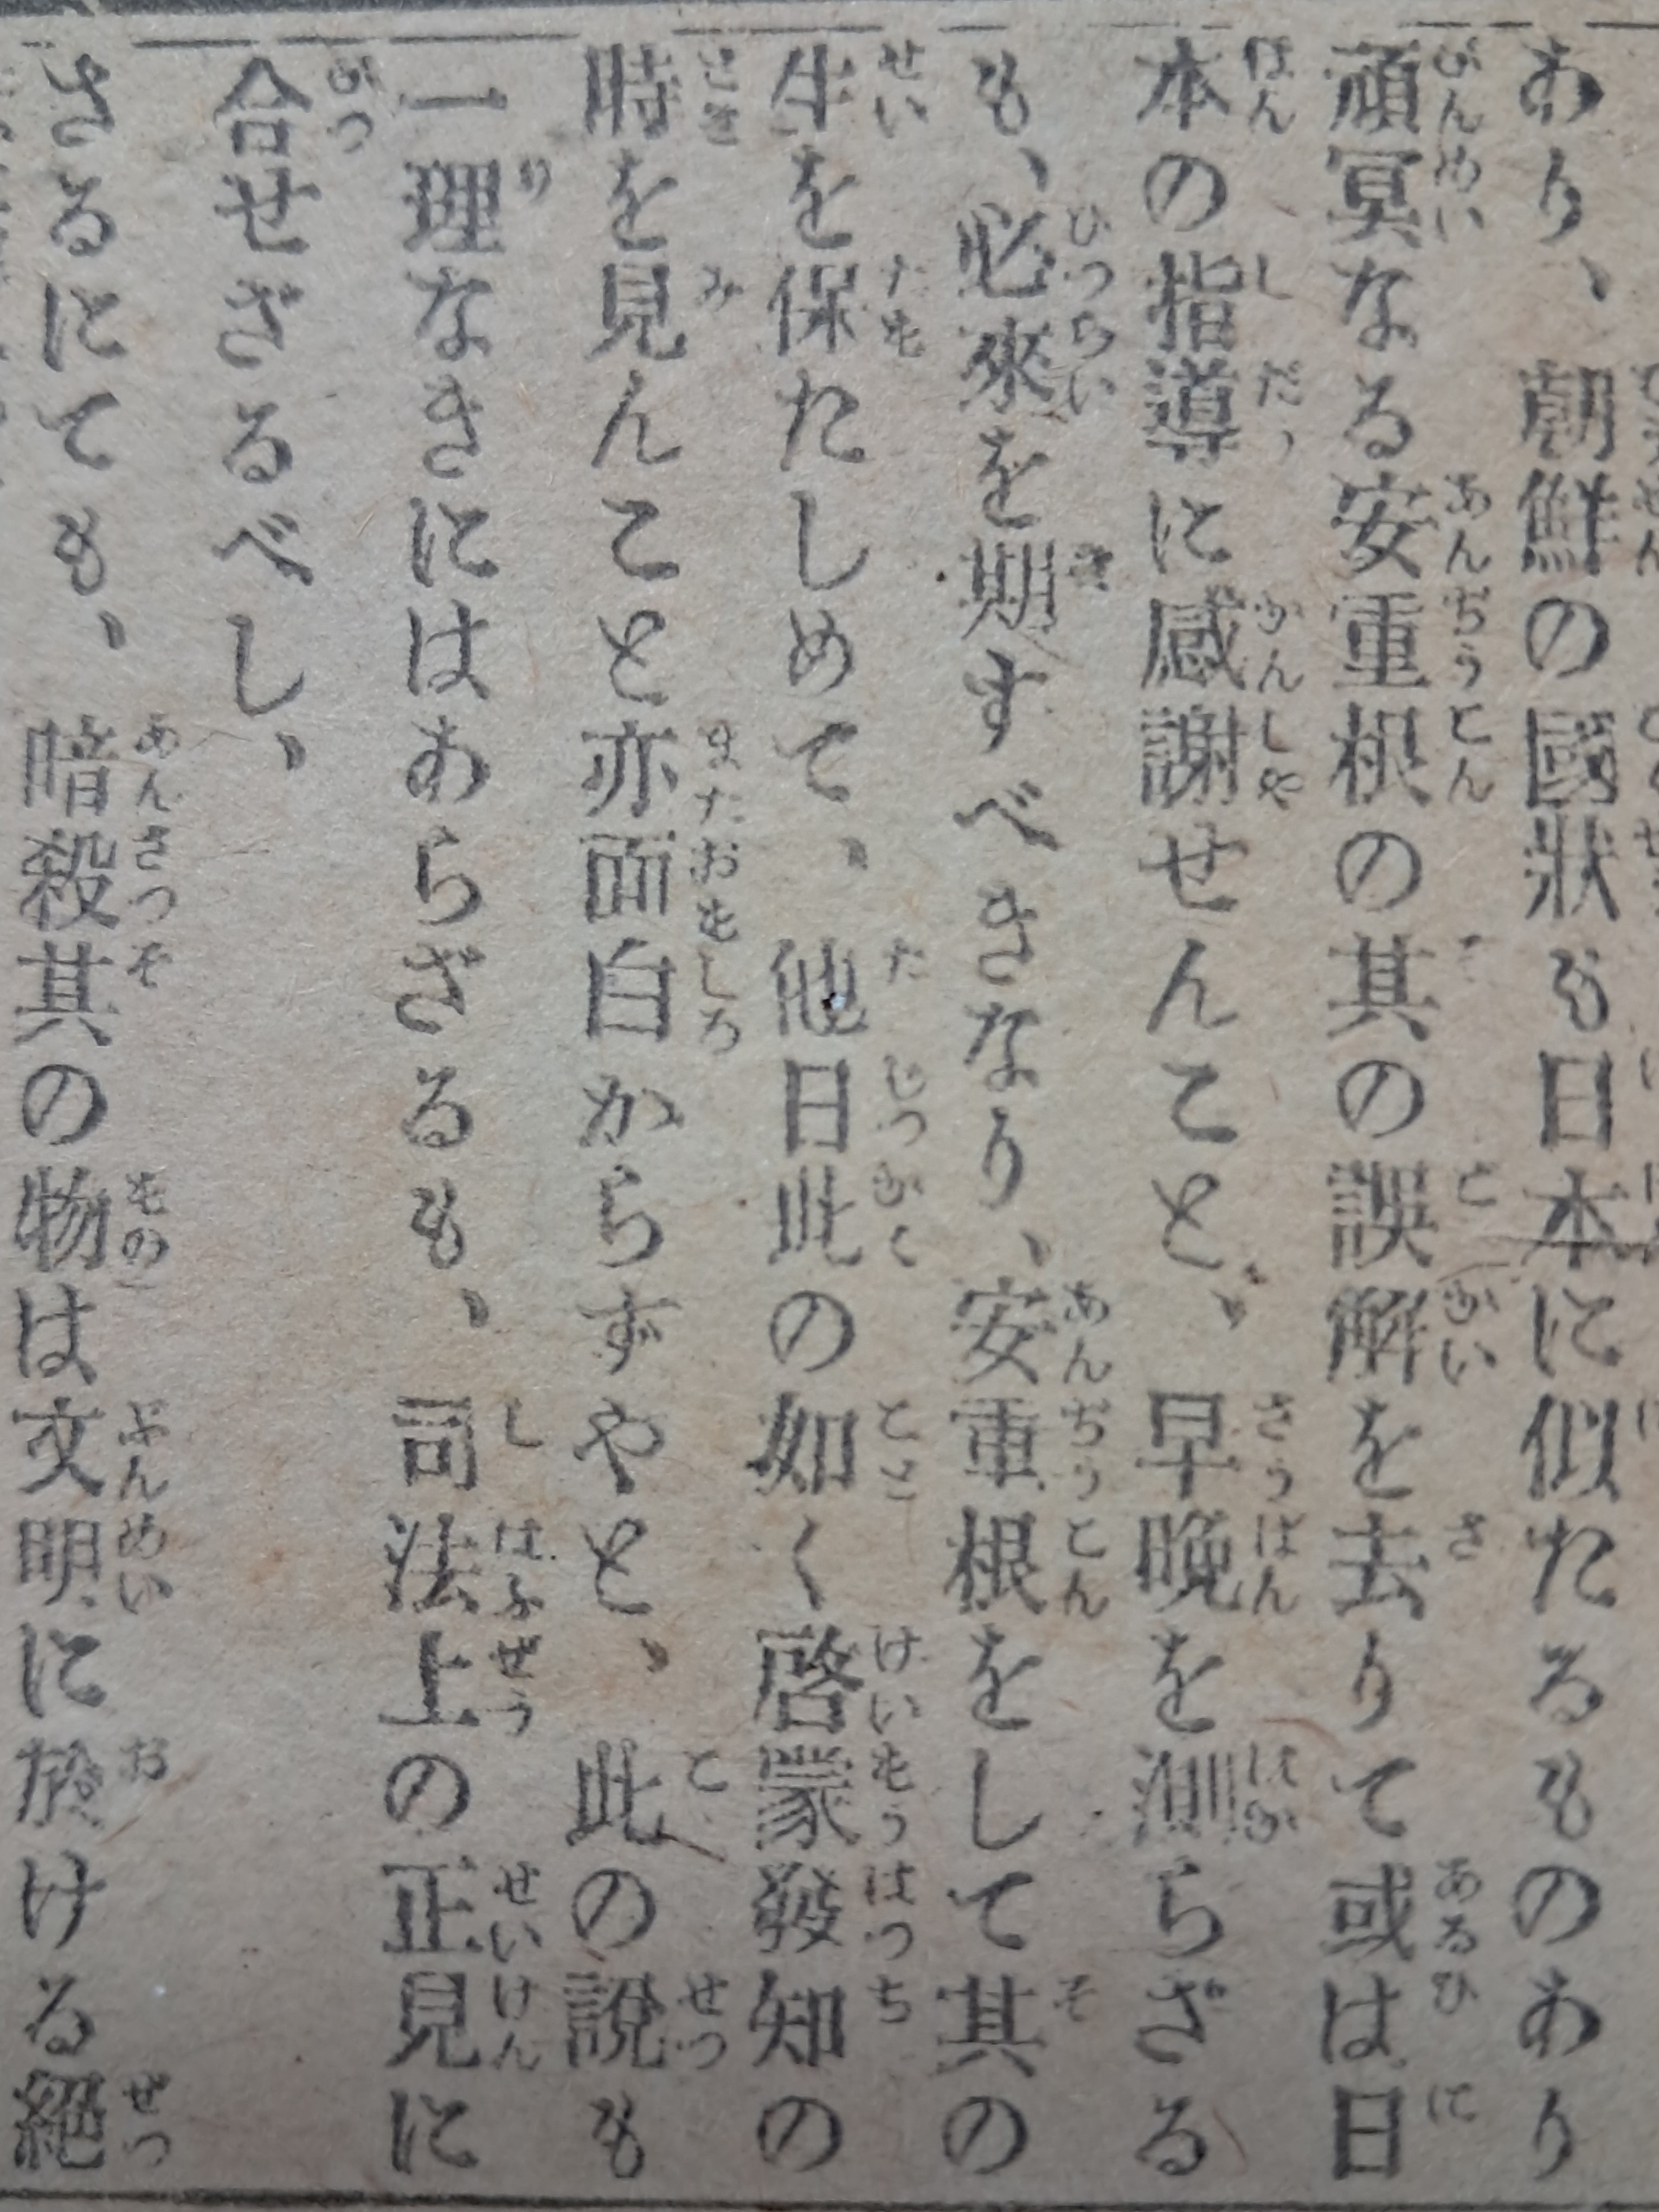 あり、朝鮮の國狀も日本に似たるものあり
頑冥なる安重根の其の誤解を去りて或は日
本の指導に感謝せんこと、早晩を測らざる
も、必來を期すべきなり、安重根をして其の
生を保たしめて、他日此の如く啓蒙發知の
時を見んこと亦面白からずやと、此の說も
一理なきにはあらざるも、司法上の正見に
合せざるべし、
さるにても、暗殺其の物は文明に於ける絕